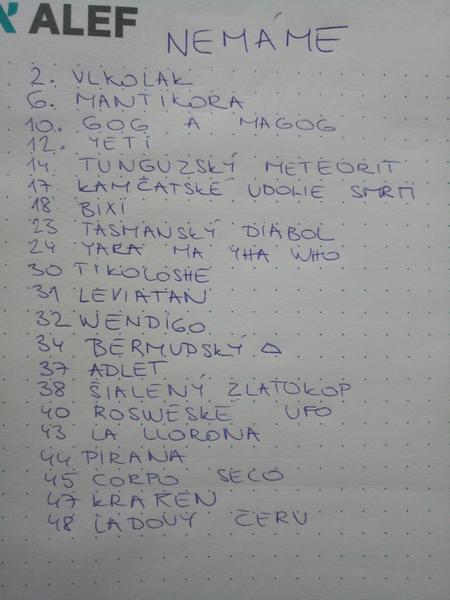 ALEF
NEMÁME
2. VLKOLAK
6. MANTIKORA
10. GOG A MAGOG
12. YETI
14. TUNGUZSKÝ METEORIT
17 KAMČATSKÉ UDOLIE SMRTI
18 BIXI
23 TASMANSKÝ DIABOL
24 YARA MA YHA WHO
30 TIKOLOSHE
31 LEVIATAN
32 WENDIGO
34 BERMUDSKÝ △
37 ADLET
38 ŠIALENÝ ZLATOKOP
40 ROSWESKÉ UFO
43 LA LLORONA
44 PIRAŇA
45 CORPO SECO
47 KRAKEN
48 ĽADOVÝ ČERV